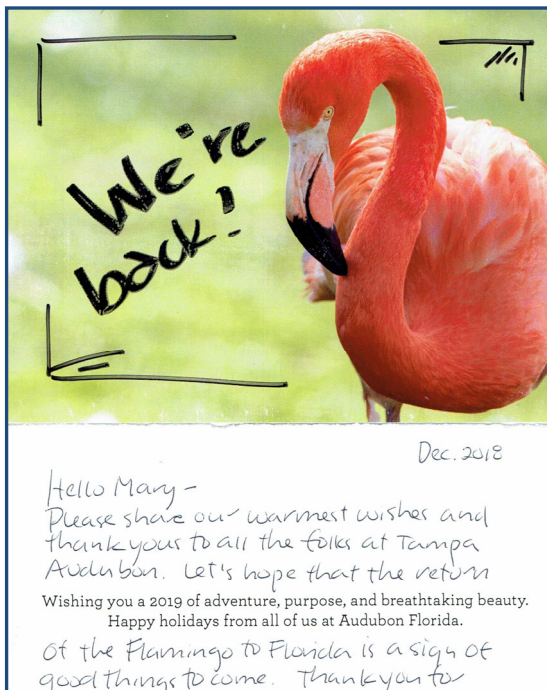 We're
back!
Dec. 2018
Hello Mary-
Please share our warmest wishes and
thank yous to all the folks at Tampa
Audubon. Let's hope that the return
Wishing you a 2019 of adventure, purpose, and breathtaking beauty.
Happy holidays from all of us at Audubon Florida.
of the Flamingo to Florida is a sign of
good things to come. Thank you for